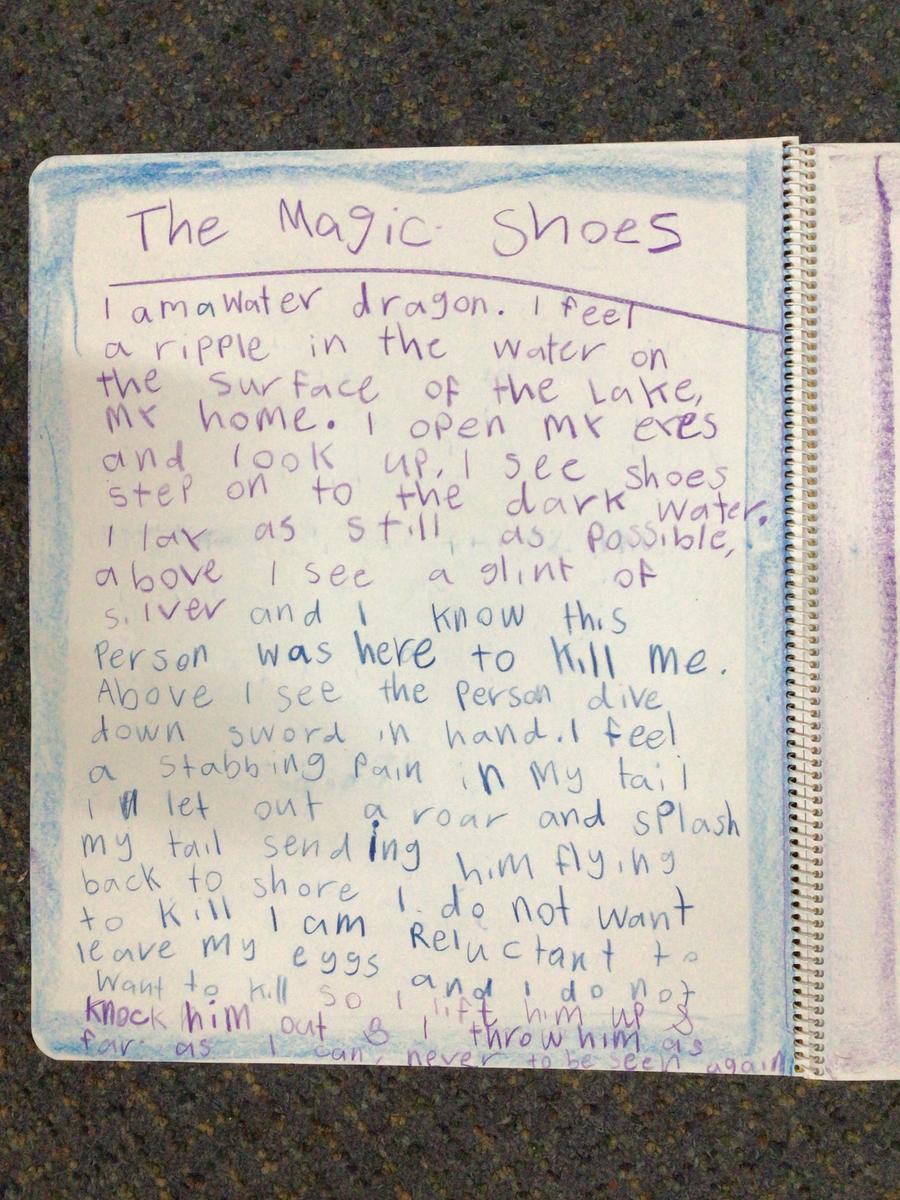 The Magic Shoes
I am a water dragon. I feel
a ripple in the water on
the surface of the Lake,
my home. I open my eyes
and look up. I see shoes
step on to the dark water.
I lay as still as possible,
above I see a glint of
silver and I know this
person was here to kill me.
Above I see the person dive
down sword in hand. I feel
a stabbing pain in my tail
i let out a roar and splash
my tail sending him flying
back to shore I do not want
to kill I am Reluctant to
leave my eggs and I do not
want to kill so I lift him up &
knock him out & I throw him as
far as I can, never to be seen again